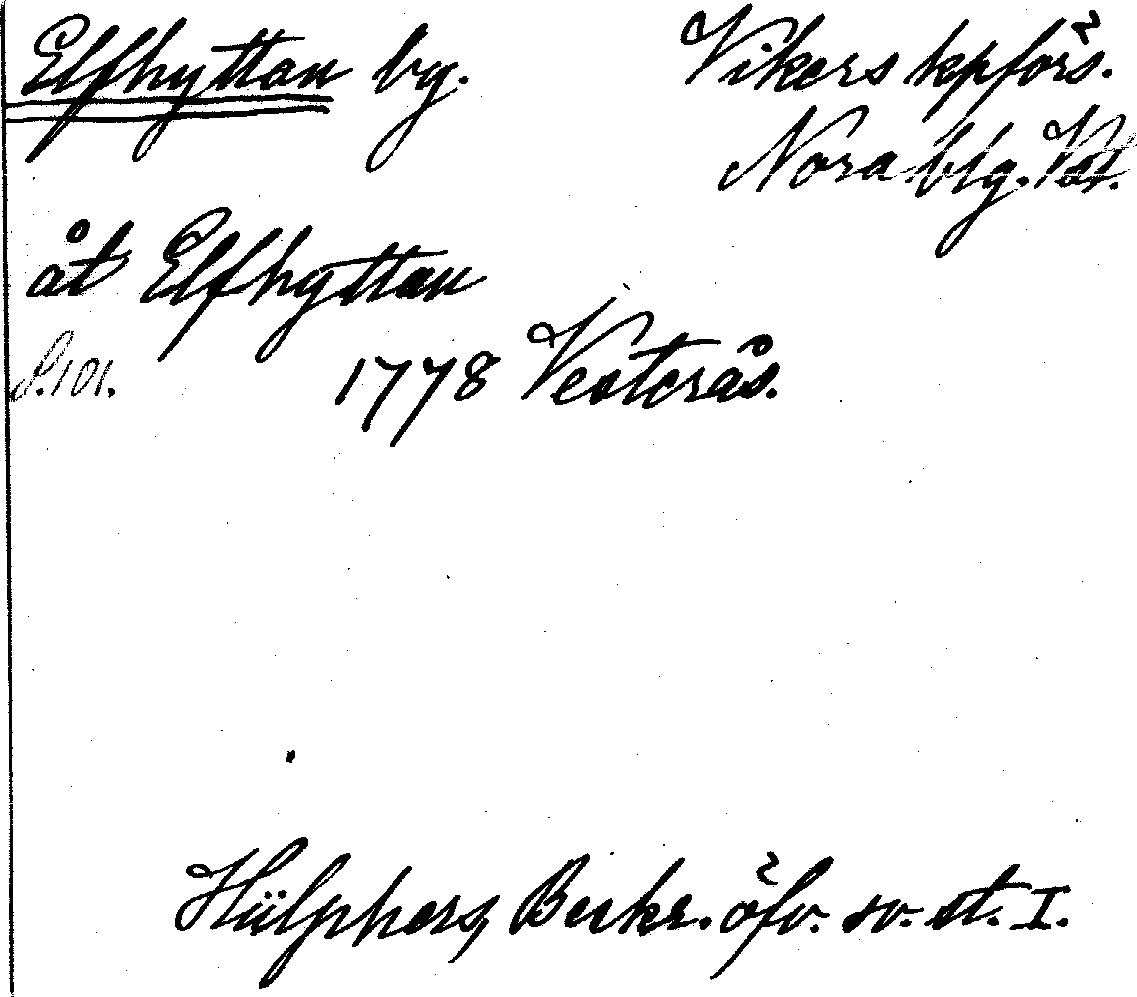 Elfhyttan by.
Vikers kpförs.
Nora blg. Vst.
åt Elfhyttan
S. 101.
1778 Vesterås.
Hülphers, Beskr. öfv. sv. st. I.